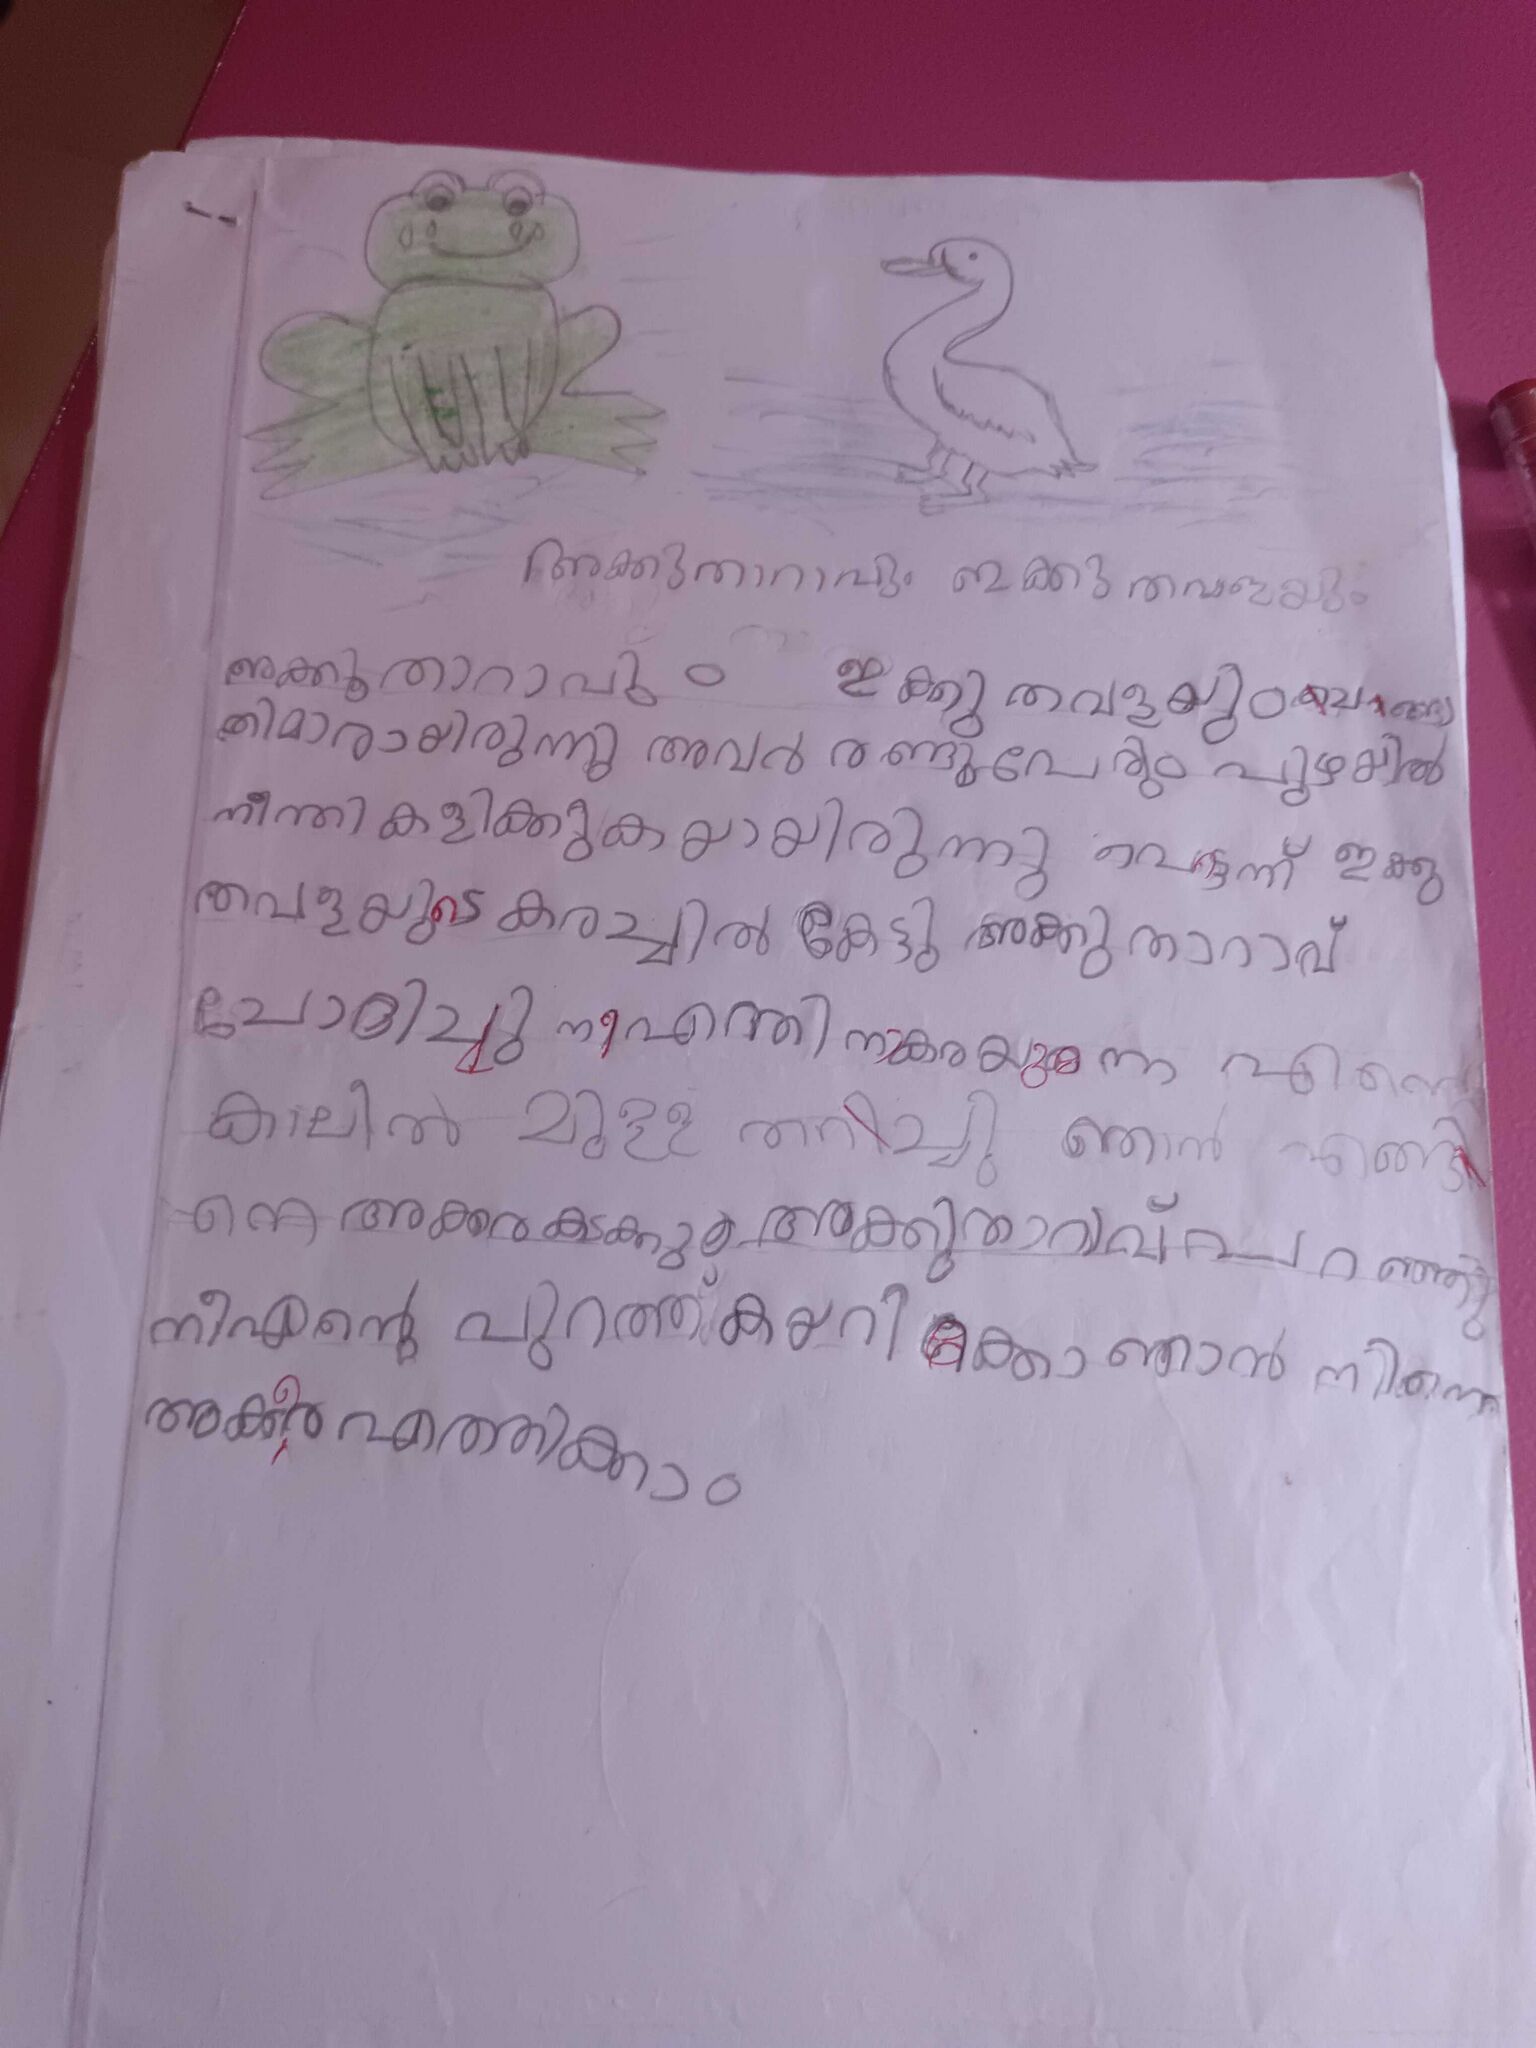 അക്കുതാറാവും ഇക്കു തവളയും
അക്കുതാറാവും ഇക്കു തവളയും
തിമാരായിരുന്നു അവർ രണ്ടുപേരും പുഴയിൽ
നീന്തി കളിക്കുകയായിരുന്നു പെട്ടന്ന് ഇക്കു
തവളയുടെ കരച്ചിൽ കേട്ടു അക്കു താറാവ്
ചോദിച്ചു നീ എന്തിനാ കരയുന്ന എന്റെ
കാലിൽ മുള്ള് തറച്ചു ഞാൻ എങ്ങ
എന്ന അക്കര കടക്കും അക്കുതാറാവ് പറഞ്ഞു
നീ എന്റെ പുറത്ത് കയറി ക്കോ ഞാൻ നിന്നെ
അക്കര എത്തിക്കാം